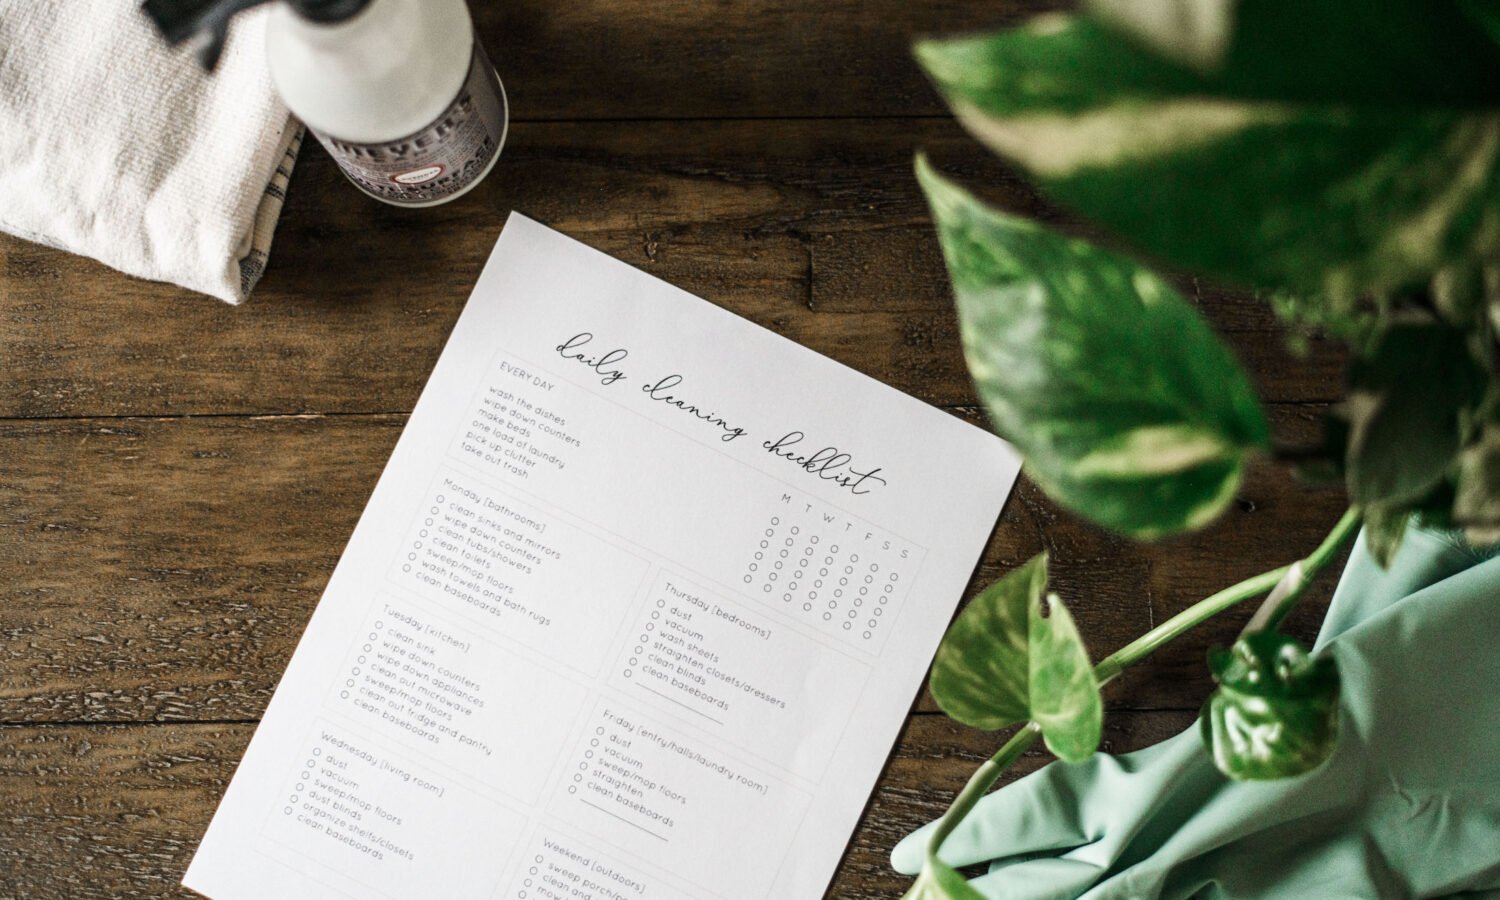 daily cleaning checklist
EVERY DAY
wash the dishes
wipe down counters
make beds
one load of laundry
pick up clutter
take out trash
M T W T F S S
Monday [bathrooms]
clean sinks and mirrors
wipe down counters
clean tubs/showers
clean toilets
sweep/mop floors
wash towels and bath rugs
clean baseboards
Tuesday [kitchen]
clean sink
wipe down counters
wipe down appliances
clean out microwave
sweep/mop floors
clean out fridge and pantry
clean baseboards
Wednesday [living room]
dust
vacuum
sweep/mop floors
dust blinds
organize shelfs/closets
clean baseboards
Thursday [bedrooms]
dust
vacuum
wash sheets
straighten closets/dressers
clean blinds
clean baseboards
Friday [entry/halls/laundry room]
dust
vacuum
sweep/mop floors
straighten
clean baseboards
Weekend [outdoors]
sweep porch/
clean and
mow